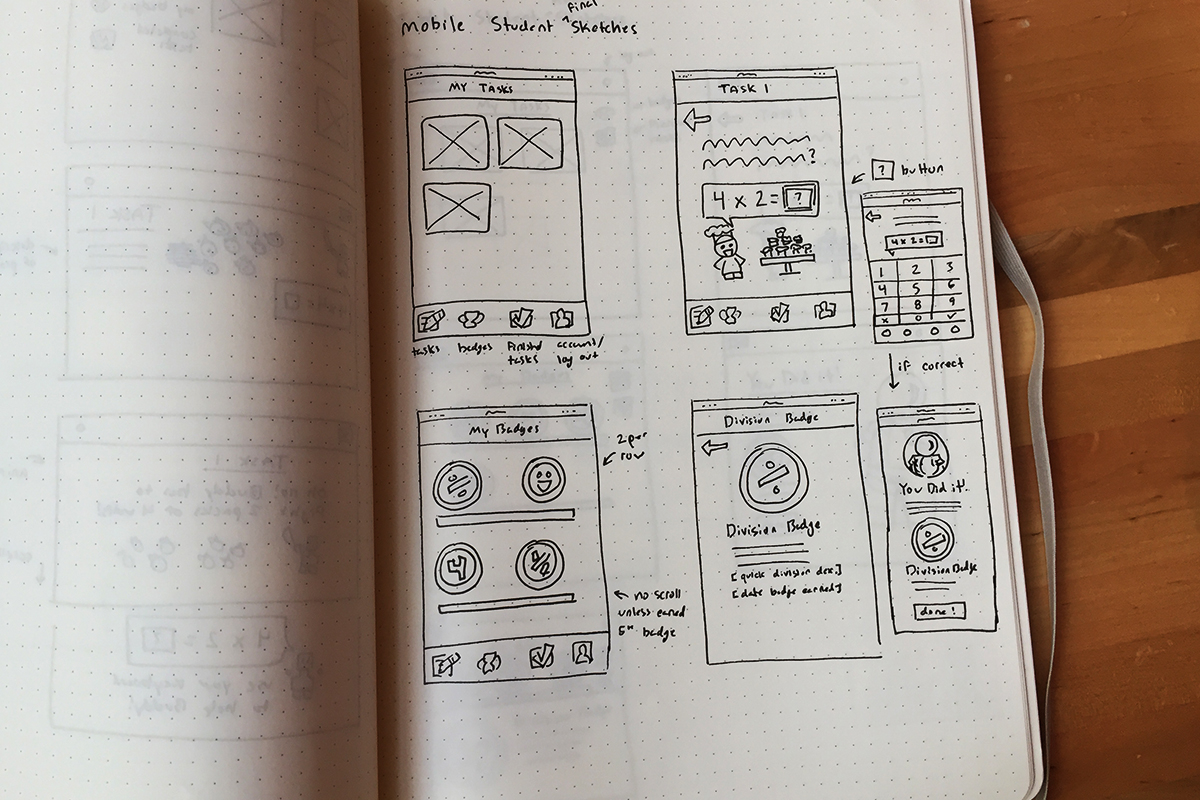 final
Mobile Student ^ Sketches
My Tasks
tasks
badges
finished tasks
account/
log out
TASK 1
?
4 x 2 = ?
? button
4 x 2 =
1 2 3
4 5 6
7 8 9
x 0 ✓
if correct
My Badges
2 per
row
no scroll
unless earned
5th badge
Division Badge
Division Badge
[quick division des.]
[date badge earned]
You Did it!
Division Badge
done!
TASK 1
TASK 1
4 x 2 = ?